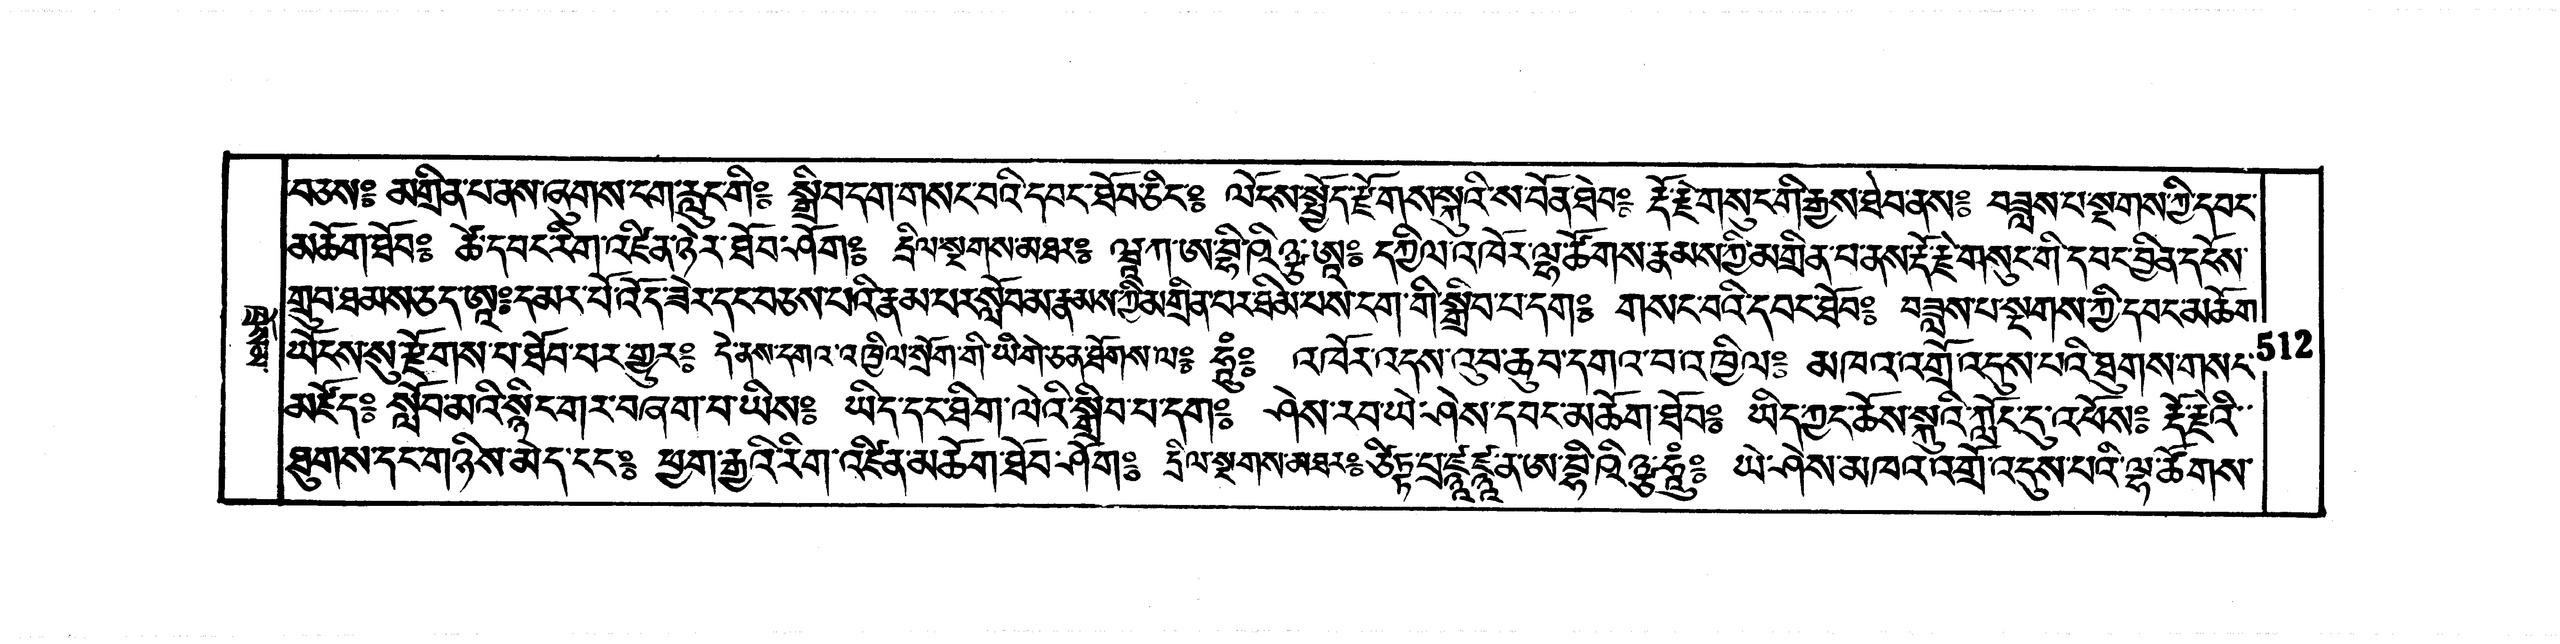 བཅས༔ མགྲིན་པ་ནས་ཞུགས་ངག་རླུང་གི༔ སྒྲིབ་དག་གསང་བའི་དབང་ཐོབ་ཅིང༔ ལོངས་སྤྱོད་རྫོགས་སྐུའི་ས་བོན་ཐེབ༔ རྡོ་རྗེ་གསུང་གི་རྒྱས་ཐེབ་ནས༔ བཟླས་པ་སྔགས་ཀྱི་དབང་
མཆོག་ཐོབ༔ ཚེ་དབང་རིག་འཛིན་ཉེར་ཐོབ་ཤོག༔ དྲིལ་སྔགས་མཐར༔ ཝཱཀ་ཨ་བྷི་ཥིཉྩ་ཨཱཿ དཀྱིལ་འཁོར་ལྷ་ཚོགས་རྣམས་ཀྱི་མགྲིན་པ་ནས་རྡོ་རྗེ་གསུང་གི་དབང་བྱིན་དངོས་
གྲུབ་ཐམས་ཅད་ཨཱཿདམར་པོ་འོད་ཟེར་དང་བཅས་པའི་རྣམ་པར་སློབ་མ་རྣམས་ཀྱི་མགྲིན་པར་ཐིམ་པས་ངག་གི་སྒྲིབ་པ་དག༔ གསང་བའི་དབང་ཐོབ༔ བཟླས་པ་སྔགས་ཀྱི་དབང་མཆོག
ཡོངས་སུ་རྫོགས་པ་ཐོབ་པར་གྱུར༔ དེ་ནས་དགའ་འཁྱིལ་སྲོག་གི་ཡིགེ་ཅན་ཐོགས་ལ༔ ཧཱུྃ༔ འཁོར་འདས་འུབ་ཆུབ་དགའ་བ་འཁྱིལ༔ མཁའ་འགྲོ་འདུས་པའི་ཐུགས་གསང་
མཛོད༔ སློབ་མའི་སྙིང་གར་བཞག་པ་ཡིས༔ ཡིད་དང་ཐིག་ལེའི་སྒྲིབ་པ་དག༔ ཤེས་རབ་ཡེ་ཤེས་དབང་མཆོག་ཐོབ༔ ཡིད་ཀྱང་ཆོས་སྐུའི་ཀློང་དུ་འཕོས༔ རྡོ་རྗེའི་
ཐུགས་དང་གཉིས་མེད་ངང༔ ཕྱག་རྒྱའི་རིག་འཛིན་མཆོག་ཐོབ་ཤོག༔ དྲིལ་སྔགས་མཐར༔ ཙིཏྟ་པྲཛྙཱཛྙཱན་ཨ་བྷི་ཥིཉྩ་ཧཱུྃ༔ ཡེ་ཤེས་མཁའ་འགྲོ་འདུས་པའི་ལྷ་ཚོགས་
512